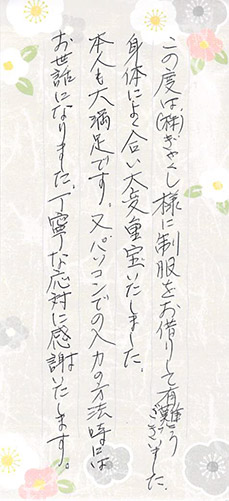 この度は、(株)ぎゃくし様に制服をお借りして有難うございました。
身体によく合い大変重宝いたしました。
本人も大満足です。又パソコンでの入力の方法時には
お世話になりました。丁寧な応対に感謝いたします。